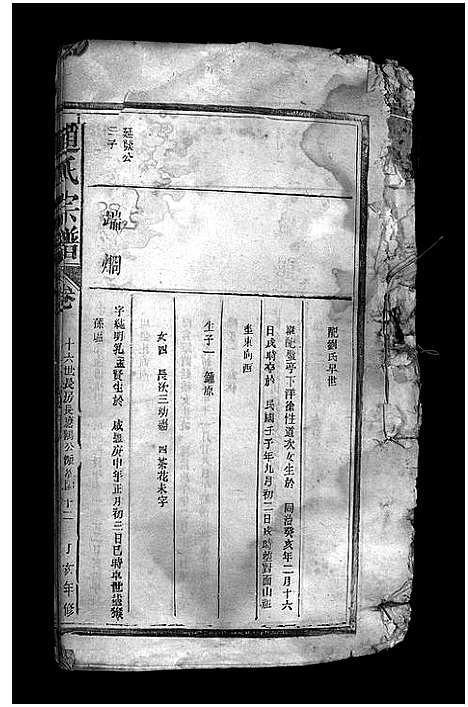 配劉氏早世
繼配墨亭下洋徐性道次女生於 同治癸亥年二月十六
日戌時卒於 民國壬子年九月初二日戌時葬對面山祖
坐東向西
生子一 鍾原
女四 長次三幼殤 四茶花未字
延陵公
三子
端嫻
字純明乳孟賢生於 咸豐庚申年正月初三日巳時卒世
孫區
趙氏宗譜
卷
十六世長房長
十二
丁亥年修